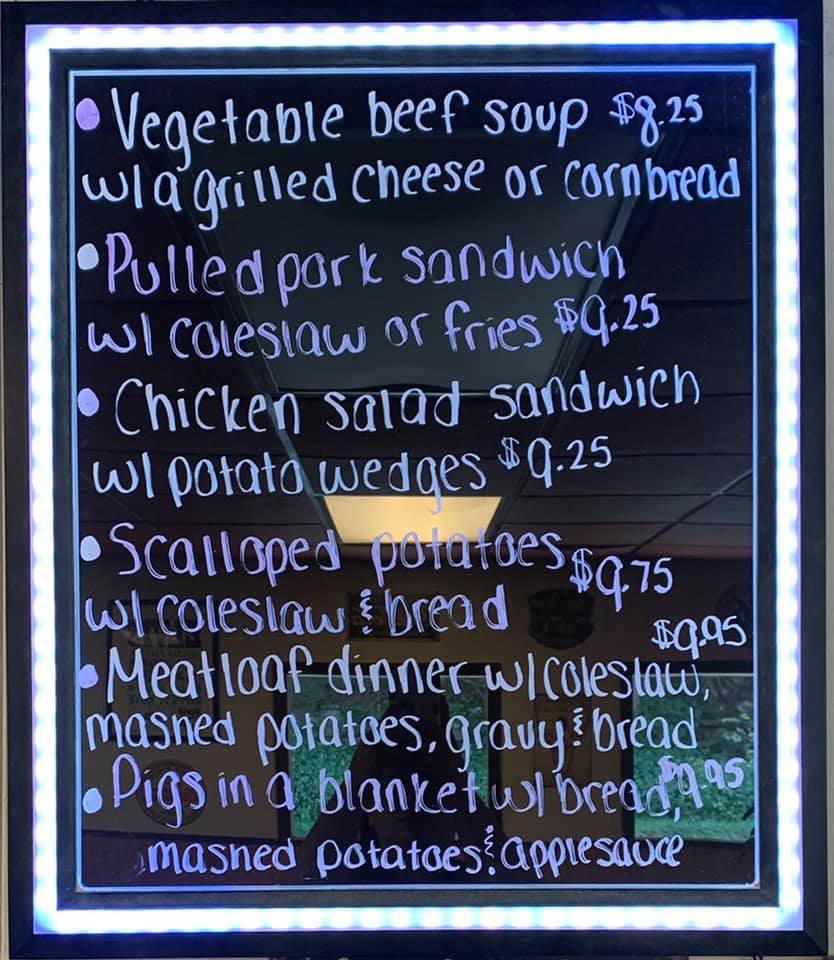 • Vegetable beef soup $8.25
w/ a grilled cheese or cornbread
• Pulled pork sandwich
w/ coleslaw or fries $9.25
• Chicken salad sandwich
w/ potato wedges $9.25
• Scalloped potatoes $9.75
w/ coleslaw & bread
$9.95
• Meatloaf dinner w/ coleslaw,
mashed potatoes, gravy & bread
• Pigs in a blanket w/ bread, $9.95
mashed potatoes & applesauce